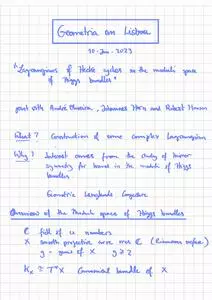 Geometria em Lisboa
10-Jan-2023
"Lagrangians of Hecke cycles in the moduli space
of Higgs bundles"
joint with André Oliveira, Johannes Horn and Robert Hanson
What? Construction of some complex Lagrangians
Why? Interest comes from the study of mirror
symmetry for branes in the moduli of Higgs
bundles
Geometric Langlands Conjecture
Overview of the Moduli space of Higgs bundles
ℂ field of ℂ numbers
X smooth projective curve over ℂ (Riemann surface)
g - genus of X g ≥ 2
K_X ≅ T*X Canonical bundle of X